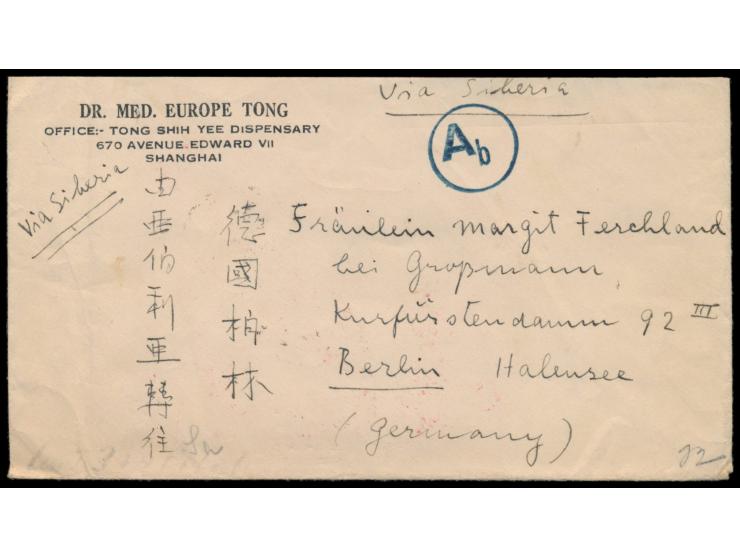 Via Siberia
DR. MED. EUROPE TONG
OFFICE:- TONG SHIH YEE DISPENSARY
670 AVENUE EDWARD VII
SHANGHAI
Ab
Via Siberia
由亞伯利亚轉往
德國柏林
Fräulein Margit Ferchland
bei Großmann
Kurfürstendamm 92 III
Berlin Halensee
(Germany)